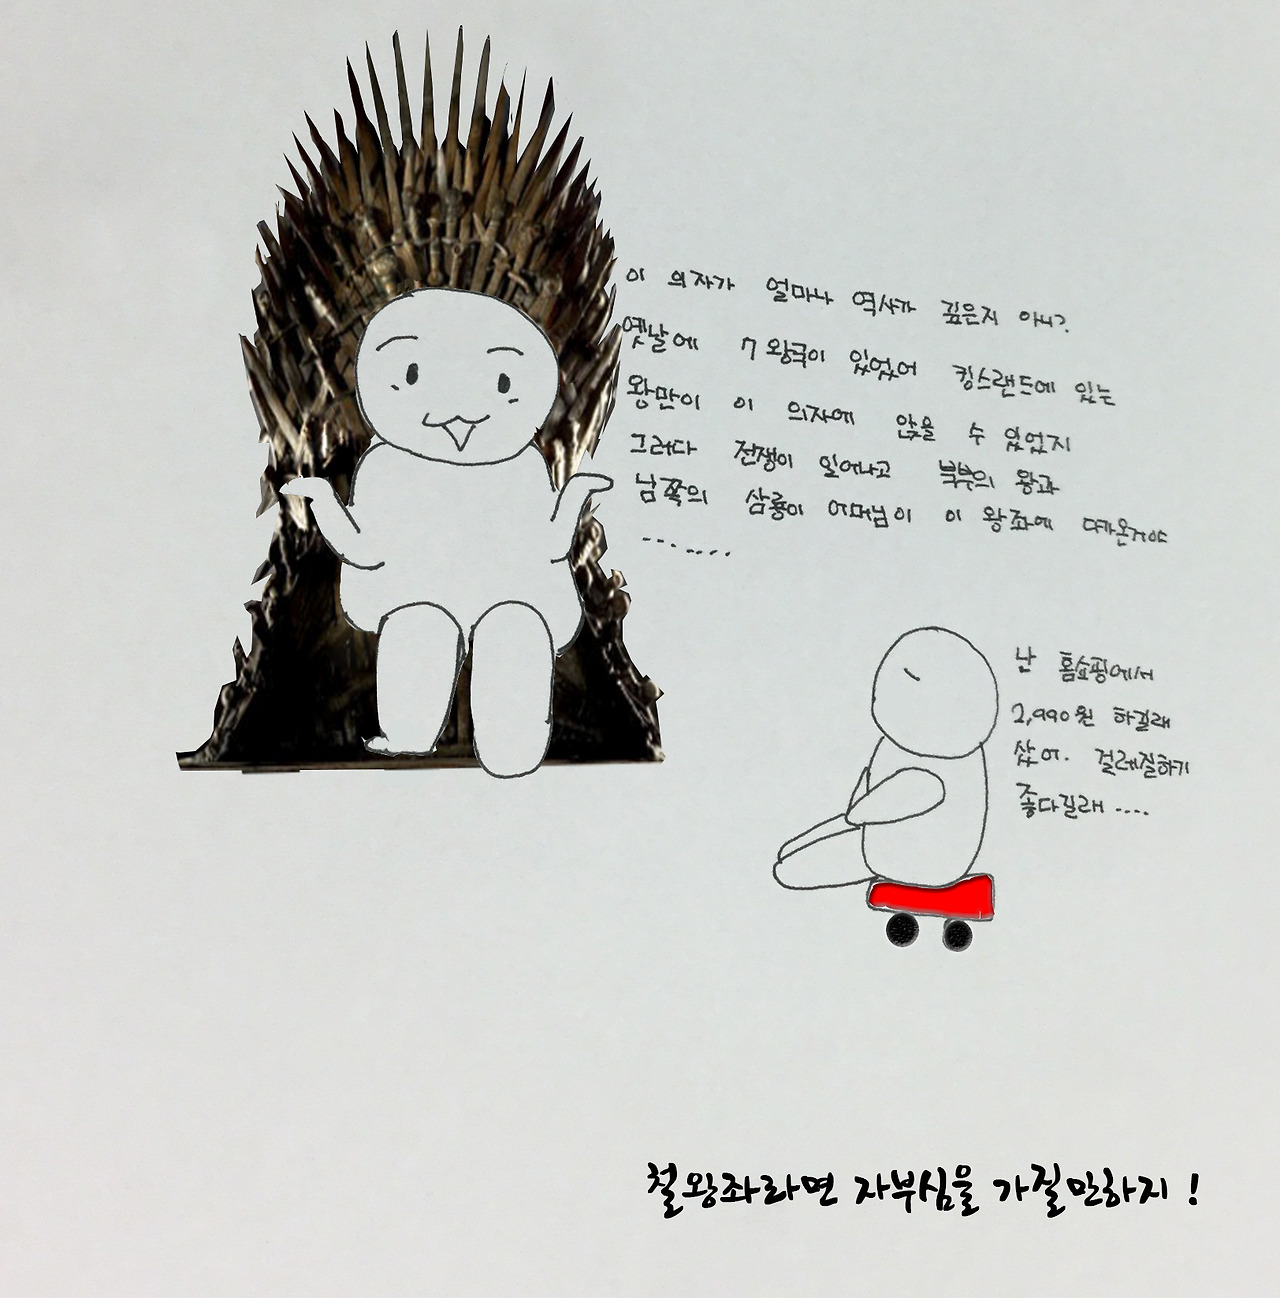 이 의자가 얼마나 역사가 깊은지 아니?
옛날에 7왕국이 있었어 킹스랜드에 있는
왕만이 이 의자에 앉을 수 있었지
그러다 전쟁이 일어나고 북부의 왕과
남쪽의 삼룡이 어머님이 이 왕좌에 다가온거야
.......
난 홈쇼핑에서
2,990원 하길래
샀어. 걸레질하기
좋다길래 ....
철왕좌라면 자부심을 가질만하지 !